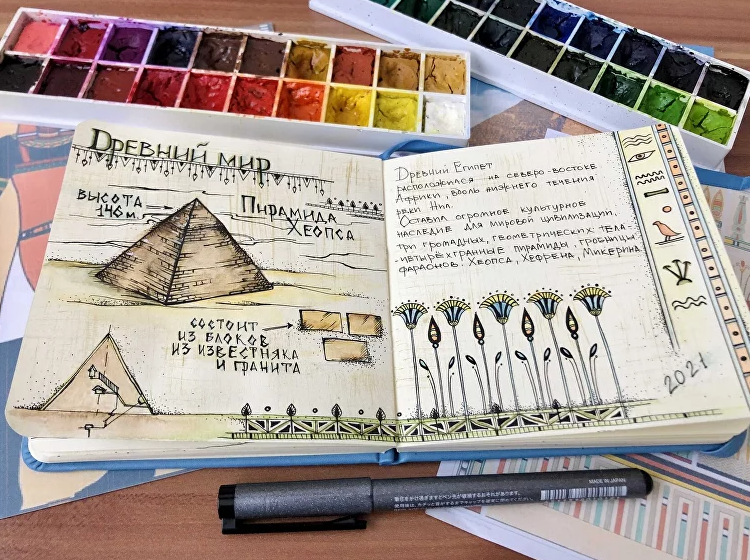 Древний мир
высота
146 м.
Пирамида
Хеопса
состоит
из блоков
из известняка
и гранита
Древний Египет
расположился на северо-востоке
Африки, вдоль нижнего течения
реки Нил.
Оставила огромное культурное
наследие для мировой цивилизации.
Три громадных, геометрических тела-
-четырёхгранные пирамиды, гробницы
фараонов: Хеопса, Хефрена, Микерина.
2021
MADE IN JAPAN